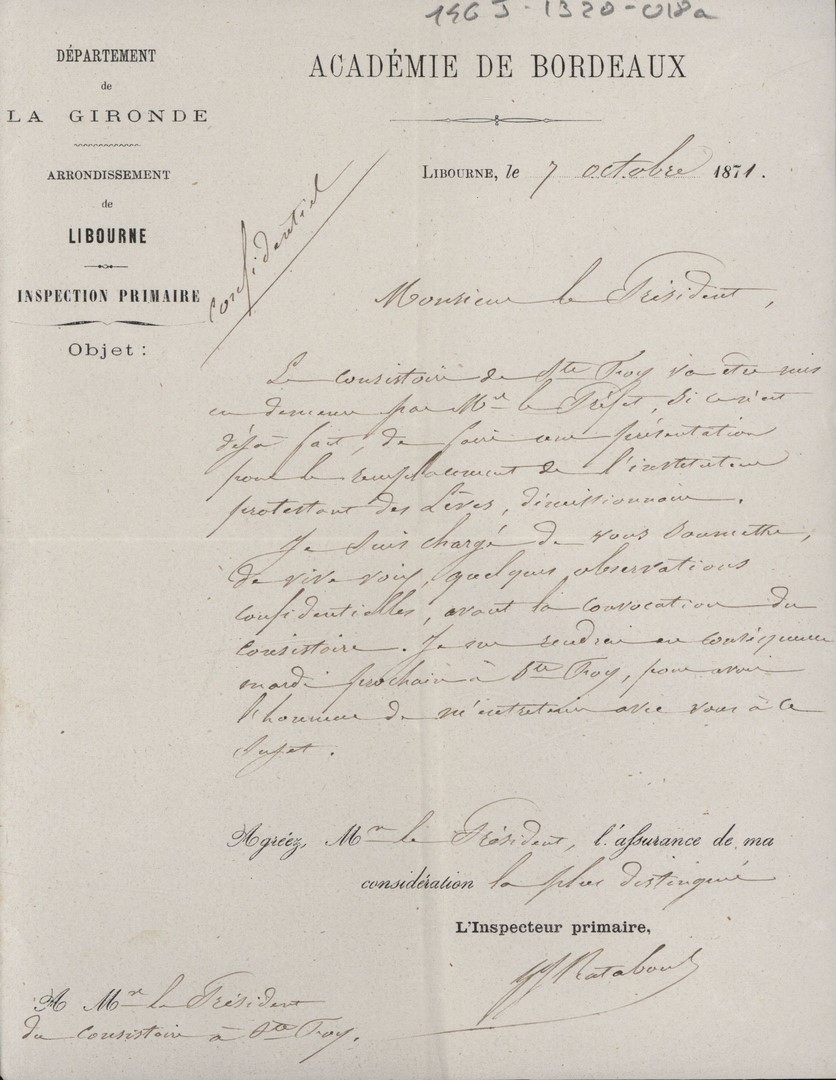 146 J - 1320 - 018a
DÉPARTEMENT
de
LA GIRONDE
ARRONDISSEMENT
de
LIBOURNE
INSPECTION PRIMAIRE
Objet :
ACADÉMIE DE BORDEAUX
LIBOURNE, le 7 octobre 1871.
confidentiel
Monsieur le Président,
Le consistoire de Ste Foy va être mis
en demeure par Mr le Préfet, si ce n'est
déjà fait, de faire une présentation
pour le remplacement de l'instituteur
protestant des Lèves, démissionnaire.
Je suis chargé de vous soumettre,
de vive voix, quelques observations
confidentielles, avant la convocation du
consistoire. Je me rendrai en conséquence
mardi prochain à Ste Foy, pour avoir
l'honneur de m'entretenir avec vous à ce
sujet.
Agréez, Mr le Président, l'assurance de ma
considération la plus distinguée
L'Inspecteur primaire,
Rataboul
A Mr le Président
du consistoire à Ste Foy.